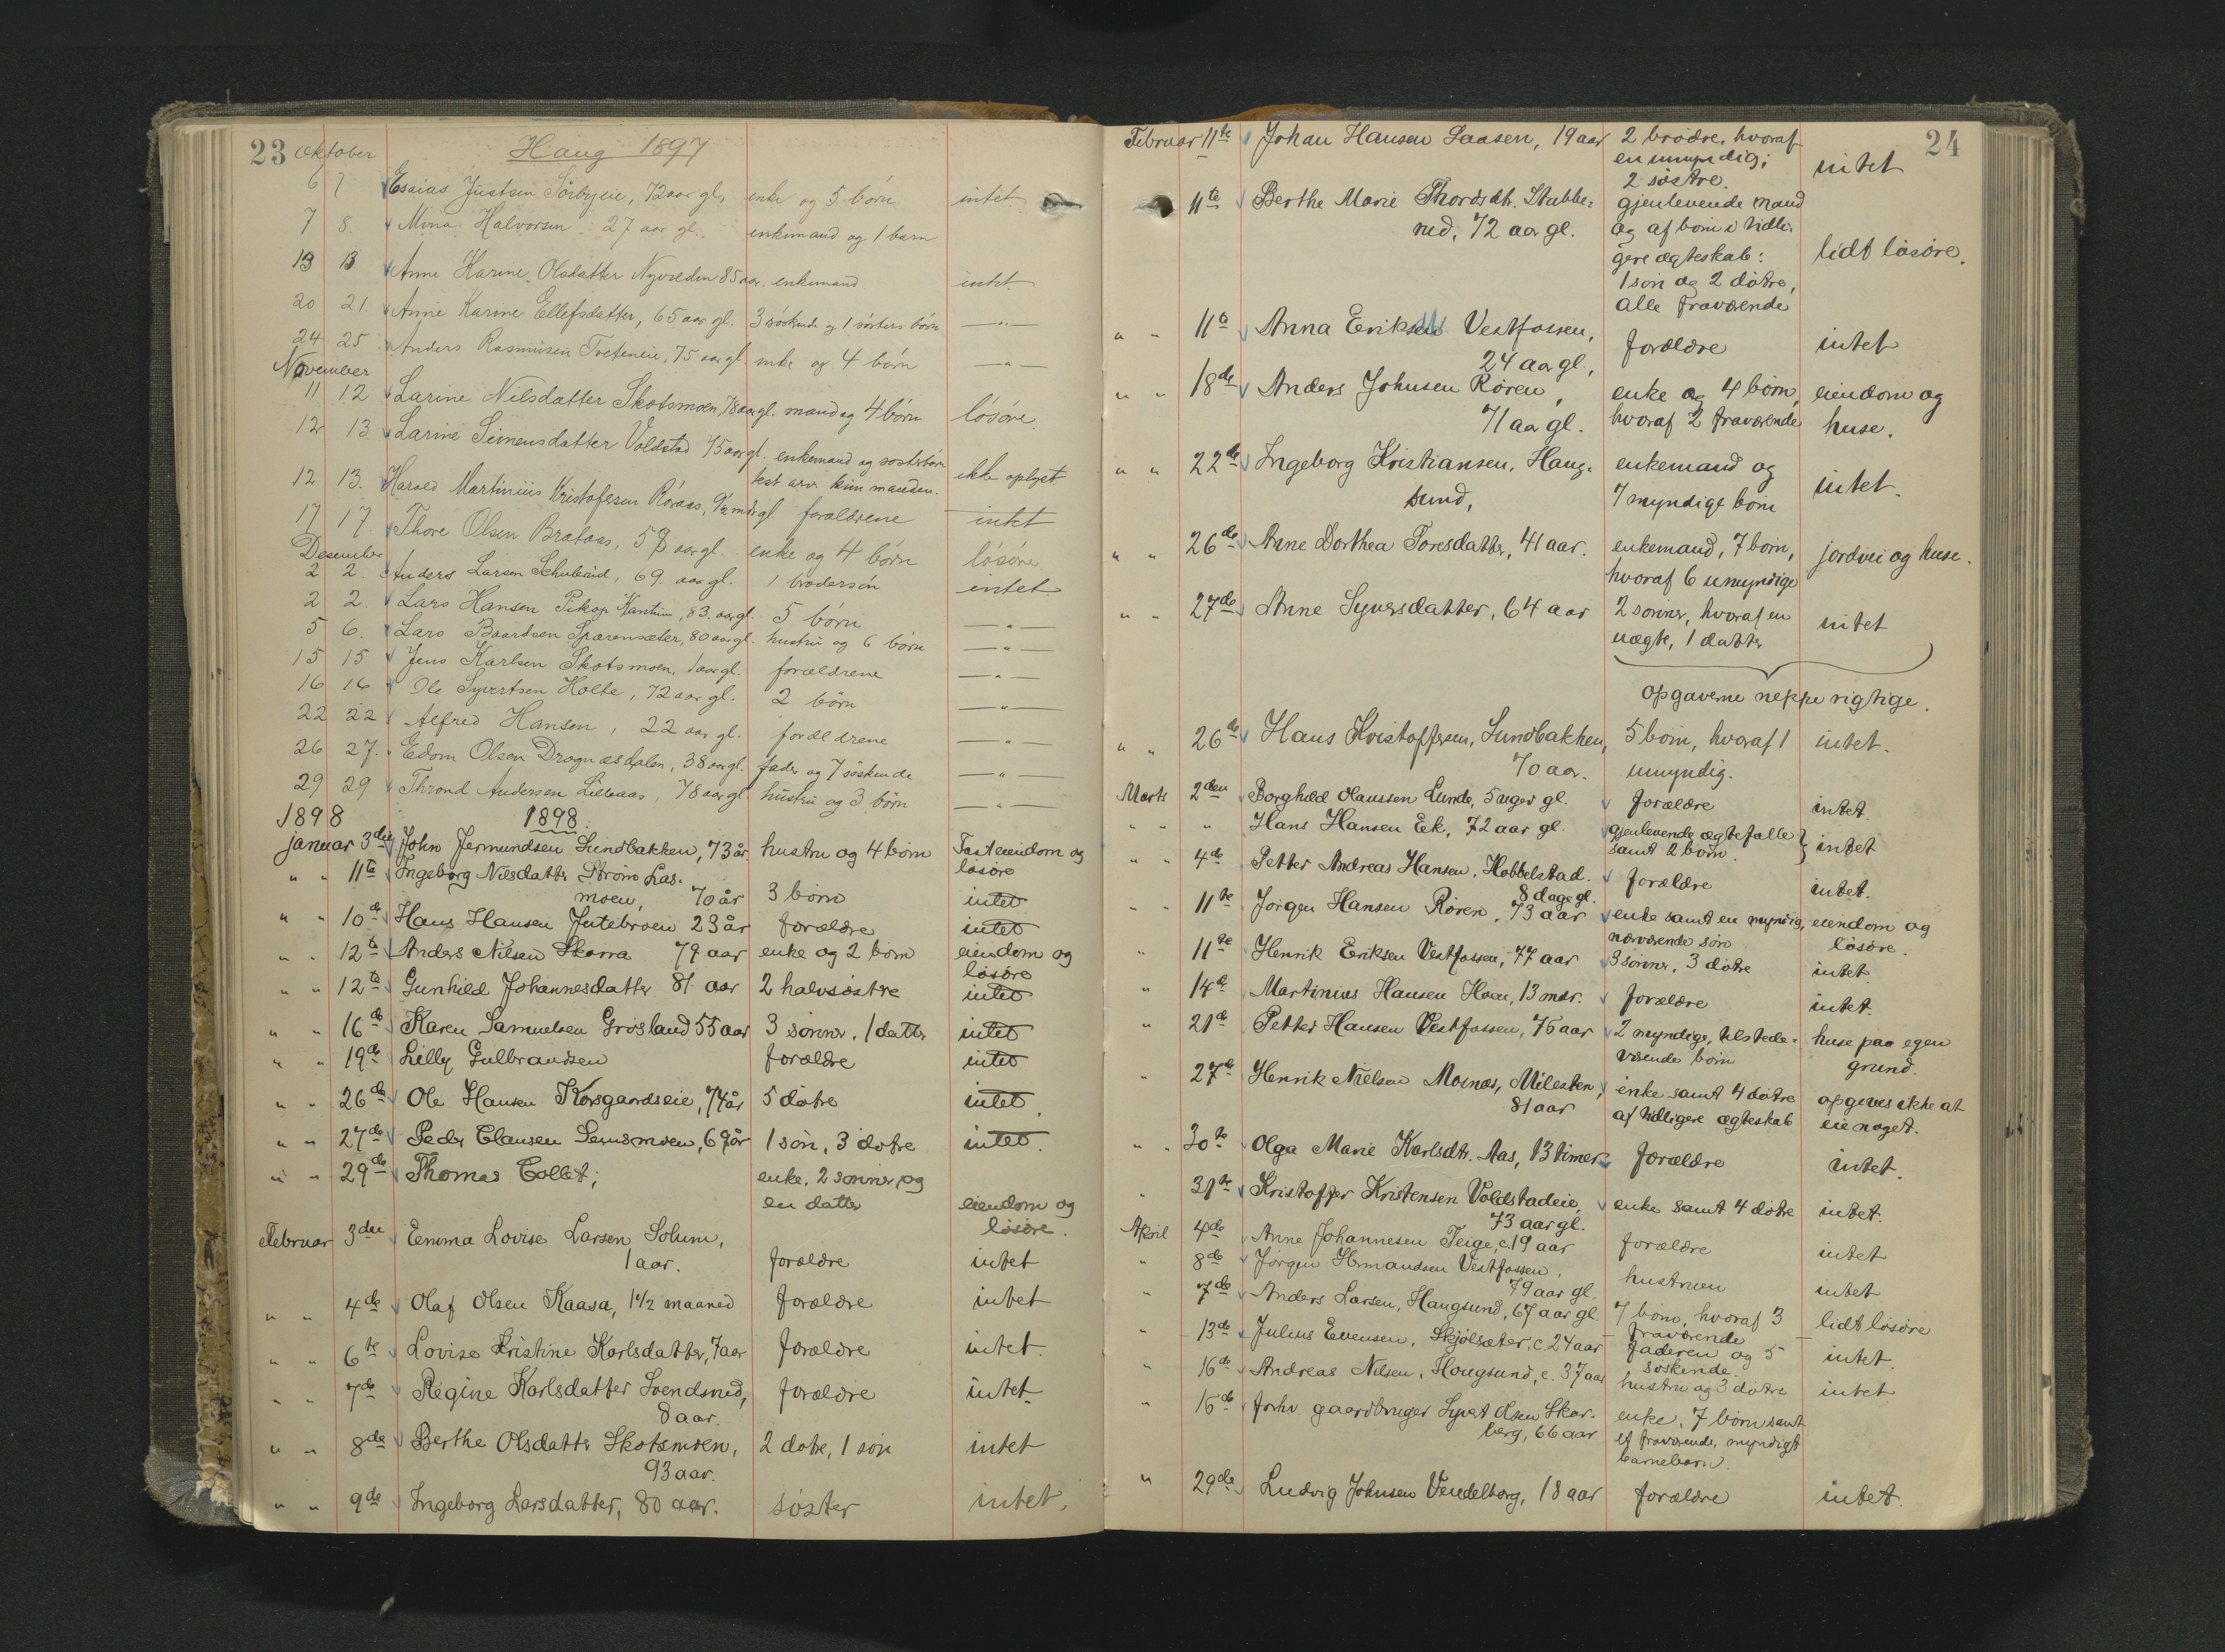 23 Oktober Haug 1897
6 7 Esaias Justsen Sörbyeie, 72 aar gl. enke og 5 börn intet
7 8. Mina Halvorsen 27 aar gl. enkemand og 1 barn
13 13 Anne Karine Olsdatter 85 aar. enkemand intet
20 21. Anne Karine Ellefsdatter, 65 aar gl. 3 söskende og 1 sösters börn — " —
24 25 Anders Rasmusen Tveteneie, 75 aar gl. enke og 4 börn — " —
November
11 12 Larine Nilsdatter Skotsmoen, 78 aar gl. mand og 4 börn lösöre.
12 13 Larine Simensdatter Voldstad 75 aar gl. enkemand og sösterbörn
test arv kun manden. ikke oplyst
12 13. Harald Martinius Kristofersen Röraas, 9½ mdr gl. forældrene intet
17 17. Thore Olsen Brataas, 58 aar gl. enke og 4 börn lösöre
Desember
2 2. Anders Larsen Schulerud, 69. aar gl. 1 brodersön intet
2 2. Lars Hansen 83. aar gl. 5 börn — " —
5 6. Lars Baardsen Sparensæter, 80 aar gl. hustru og 6 börn — " —
15 15 Jens Karlsen Skotsmoen, 1 aar gl. forældrene — " —
16 16 Ole Syvertsen Holte, 72 aar gl. 2 börn — " —
22 22 Alfred Hansen, 22 aar gl. forældrene — " —
26 27. Edom Olsen Drognæsdalen, 38 aar gl. fader og 7 söskende — " —
29 29 Thrond Andersen Lilleaas, 78 aar gl. hustru og 3 börn — " —
1898 1898.
januar 3die John Jermundsen Lundbakken, 73 år. hustru og 4 börn Fast eiendom og
lösöre
" " 11te Ingeborg Nilsdatter Ström Las-
moen, 70 år 3 börn intet
" " 10de Hans Hansen Jutebroen 23 år forældre intet
" " 12te Anders Nilsen Skarra 79 aar enke og 2 börn eiendom og
lösöre
" " 12te Gunhild Johannesdatter 81 aar 2 halvsöstre intet
" " 16de Karen Samuelsen Grösland 55 aar 3 sönner, 1 datter intet
" " 19de Lilly Gulbrandsen forældre intet
" " 26de Ole Hansen Korsgaardseie, 74 år 5 døtre intet.
" " 27de Peder Clausen Lerusmoen, 69 år 1 sön, 3 døtre intet.
" " 29de Thomas Collet; enke, 2 sönner og
en datter eiendom og
lösöre.
Februar 3die Emma Lovise Larsen Solum,
1 aar. forældre intet
" " 4de Olaf Olsen Kaasa, 1½ maaned forældre intet
" " 6te Lovise Kristine Karlsdatter, 7 aar forældre intet.
" " 7de Regine Karlsdatter Svendsrud, forældre intet
8 aar.
" " 8de Berthe Olsdatter Skotsmoen, 2 døtre, 1 sön intet
93 aar.
" " 9de Ingeborg Larsdatter, 80 aar. söster intet.
24
Februar 11te Johan Hansen Laasen, 19 aar 2 brödre, hvoraf
en umyndig; intet
2 söstre.
11te Berthe Marie Thordsdtr. Stubbe- gjenlevende mand
rud, 72 aar gl. og af börn i tidli-
gere ægteskab: lidt lösöre.
1 sön og 2 døtre,
alle fraværende
" " 11te Anna Eriksen Vestfossen, forældre intet
24 aar gl.,
" " 18de Anders Johnsen Rören, enke og 4 börn, eiendom og
71 aar gl. hvoraf 2 fraværende huse.
" " 22de Ingeborg Kristiansen, Haug- enkemand og intet.
sund, 7 myndige börn
" " 26de Anne Dorthea Toresdatter, 41 aar. enkemand, 7 börn, jordvei og huse.
hvoraf 6 umyndige
" " 27de Anne Syversdatter, 64 aar 2 sönner, hvoraf en intet
uægte, 1 datter
opgaverne neppe rigtige.
" " 26de Hans Kristoffersen, Lundbakken, 5 börn, hvoraf 1 intet.
70 aar. umyndig.
Marts 2den Borghild Olaussen Lunde, 5 uger gl. forældre intet.
" " " Hans Hansen Eek, 72 aar gl. gjenlevende ægtefælle
samt 2 börn. } intet
" " 4de Petter Andreas Hansen, Hobbelstad. forældre intet.
8 dage gl.
" " 11te Jörgen Hansen Rören, 73 aar enke samt en myndig, eiendom og
nærværende sön lösöre.
" 11te Henrik Eriksen Vestfossen, 77 aar 3 sönner, 3 døtre intet.
" 14de Martinius Hansen Hoen, 13 mdr. forældre intet.
" 21de Petter Hansen Vestfossen, 76 aar 2 myndige, tilstede- huse paa egen
værende börn grund.
" 27de Henrik Nielsen Moenæs, Milesten, enke samt 4 døtre opgives ikke at
81 aar af tidligere ægteskab eie noget.
" " 30te Olga Marie Karlsdtr. Aas, 13 timer forældre intet.
" 31te Kristoffer Kristensen Voldstadeie, enke samt 4 døtre intet.
73 aar gl.
April 4de Anne Johannesen Teige, c. 19 aar forældre intet
" 8de Jörgen Hermandsen Vestfossen, hustruen intet
79 aar gl.
" 7de Anders Larsen, Haugsund, 67 aar gl. 7 börn, hvoraf 3 lidt lösöre
fraværende
" 13de Julius Evensen, Skjölsæter, c. 24 aar faderen og 5 intet.
söskende.
" 16de Andreas Nilsen, Hougsund, c. 37 aar hustru og 3 døtre intet
" 16de Forhv. gaardbruger Syvert Olsen Skar- enke, 7 börn samt
berg, 66 aar et fraværende, myndigt
barnebarn.
" 29de Ludvig Johnsen Vendelborg, 18 aar forældre intet.